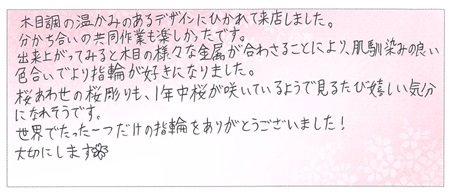 木目調の温かみのあるデザインにひかれて来店しました。
分かち合いの共同作業も楽しかったです。
出来上がってみると木目の様々な金属が合わさることにより、肌馴染みの良い
色合いでより指輪が好きになりました。
桜あわせの桜彫りも、1年中桜が咲いているようで見るたび嬉しい気分
になれそうです。
世界でたった一つだけの指輪をありがとうございました!
大切にします